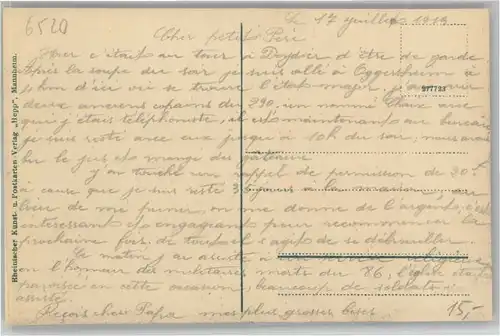 6520
Le 17 Juillet 1919
Cher petit Père
Hier c'était au tour à d'être de garde
Après la soupe du soir je suis allé à Oggersheim à
d'ici où se trouve l'état-major
deux anciens copains du 290, un nommé avec
qui j'étais téléphoniste, il est maintenant au bureau
je suis resté avec eux jusqu'à 10h du soir, nous avons
bu le jus et mangé des gâteaux
J'ai touché un rappel de permission de 30f
à cause que je suis resté 3 jours à la maison au
lieu de me, on me donne de l'argent, c'est
intéressant et engageant pour recommencer la
prochaine fois, de tout il s'agit de se débrouiller.
Ce matin j'ai assisté à
en l'honneur des militaires morts du 86, l'église était
pavoisée en cette occasion, beaucoup de soldats y
assisté
Reçois cher Papa mes plus grosses bises
277725
15,-
Rheinischer Kunst- u. Postkarten-Verlag „Hepp“, Mannheim.